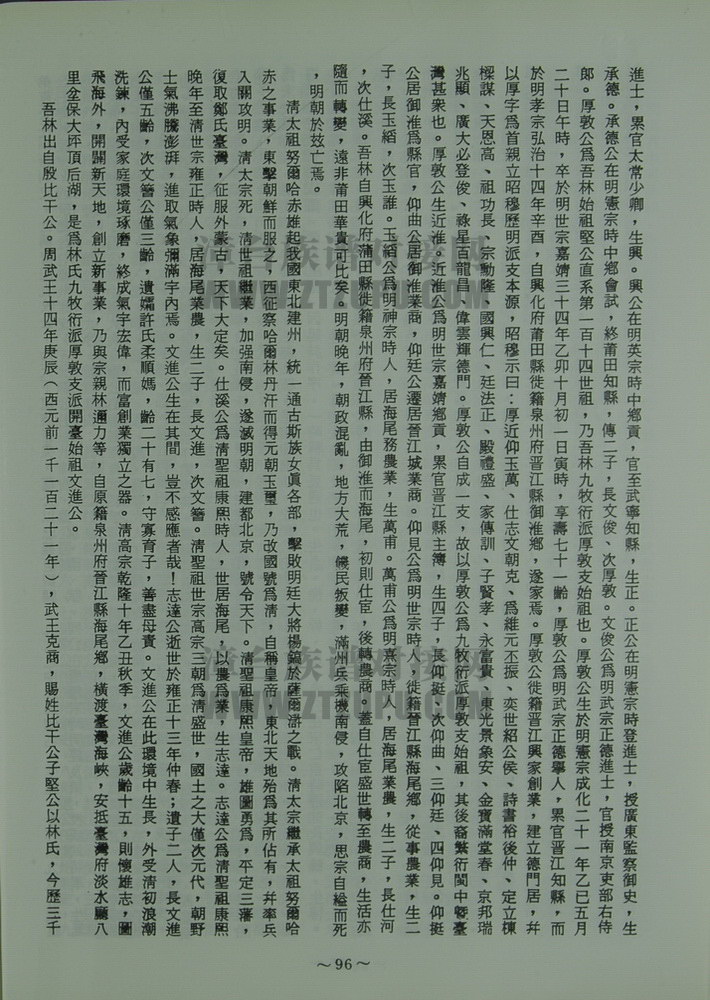 進士，累官太常少卿，生興。興公在明英宗時中鄉貢，官至武寧知縣，生正。正公在明憲宗時登進士，授廣東監察御史，生
承德。承德公在明憲宗時中鄉會試，終莆田知縣，傳二子，長文俊、次厚敦。文俊公爲明武宗正德進士，官授南京吏部右侍
郎。厚敦公爲吾林始祖堅公直系第一百十四世祖，乃吾林九牧衍派厚敦支始祖也。厚敦公生於明憲宗成化二十一年乙巳五月
二十日午時，卒於明世宗嘉靖三十四年乙卯十月初一日寅時，享壽七十一齡，厚敦公爲明武宗正德擧人，累官晉江知縣，而
於明孝宗弘治十四年辛酉，自興化府莆田縣徙籍泉州府晉江縣御淮鄉，遂家焉。厚敦公徙籍晉江興家創業，建立德門居，幷
以厚字爲首親立昭穆歷明派支本源，昭穆示曰：厚近仰玉萬、仕志文朝克、爲維元丕振、奕世紹公侯、詩書裕後仲、定立棟
樑謀、天恩高、祖功長、宗勳隆、國興仁、廷法正、殿禮盛、家傳訓、子賢孝、永富貴、東光景象安、金寶滿堂春、京邦瑞
兆顯、廣大必登俊、祿星百龍昌、偉雲輝德門。厚敦公自成一支，故以厚敦公爲九牧衍派厚敦支始祖，其後裔繁衍閩中暨臺
灣甚衆也。厚敦公生近淮。近淮公爲明世宗嘉靖鄉貢，累官晉江縣主簿，生四子，長仰挺、次仰曲、三仰廷、四仰見。仰挺
公居御淮爲縣官，仰曲公居御淮業商，仰廷公遷居晉江城業商。仰見公爲明世宗時人，徙籍晉江縣海尾鄉，從事農業，生二
子，長玉縚，次玉誰。玉縚公爲明神宗時人，居海尾務農業，生萬甫。萬甫公爲明熹宗時人，居海尾業農，生二子，長仕河
，次仕溪。吾林自興化府蒲田縣徙籍泉州府晉江縣，由御淮而海尾，初則仕宦，後轉農商，蓋自仕宦盛世轉至農商，生活亦
隨而轉變，遠非莆田華貴可比矣。明朝晚年，朝政混亂，地方大荒，饑民叛變，滿州兵乘機南侵，攻陷北京，思宗自縊而死
，明朝於玆亡焉。
清太祖努爾哈赤雄起我國東北建州，統一通古斯族女眞各部，擊敗明廷大將楊鎬於薩爾滸之戰。清太宗繼承太祖努爾哈
赤之事業，東擊朝鮮而服之，西征察哈爾林丹汗而得元朝玉璽，乃改國號爲淸，自稱皇帝，東北天地殆爲其所佔有，幷率兵
入關攻明。清太宗死，淸世祖繼業，加强南侵，遂滅明朝，建都北京，號令天下。清聖祖康熙皇帝，雄圖勇爲，平定三藩，
復取鄭氏臺灣，征服外蒙古，天下大定矣。仕溪公爲淸聖祖康熙時人，世居海尾，以農爲業，生志達。志達公爲淸聖祖康熙
晚年至淸世宗雍正時人，居海尾業農，生二子，長文進，次文簪。清聖祖世宗高宗三朝爲淸盛世，國土之大僅次元代，朝野
士氣沸騰澎湃，進取氣象彌滿宇內焉。文進公生在其間，豈不感應者哉！志達公逝世於雍正十三年仲春；遺子二人，長文進
公僅五齡，次文簪公僅三齡，遺孀許氏柔順媽，齡二十有七，守寡育子，善盡母責。文進公在此環境中生長，外受淸初浪潮
洗鍊，內受家庭環境琢磨，終成氣宇宏偉，而富創業獨立之器。清高宗乾隆十年乙丑秋季，文進公歲齡十五，則懷雄志，圖
飛海外，開闢新天地，創立新事業，乃與宗親林濔力等，自原籍泉州府晉江縣海尾鄉，橫渡臺灣海峽，安抵臺灣府淡水廳八
里坌保大坪頂后湖，是爲林氏九牧衍派厚敦支派開臺始祖文進公。
吾林出自殷比干公。周武王十四年庚辰（西元前一千一百二十一年），武王克商，賜姓比干公子堅公以林氏，今歷三千
～96～
漳台族谱对接站
WWW.ZTZUPU.COM
漳台族谱对接站
WWW.ZTZUPU.COM